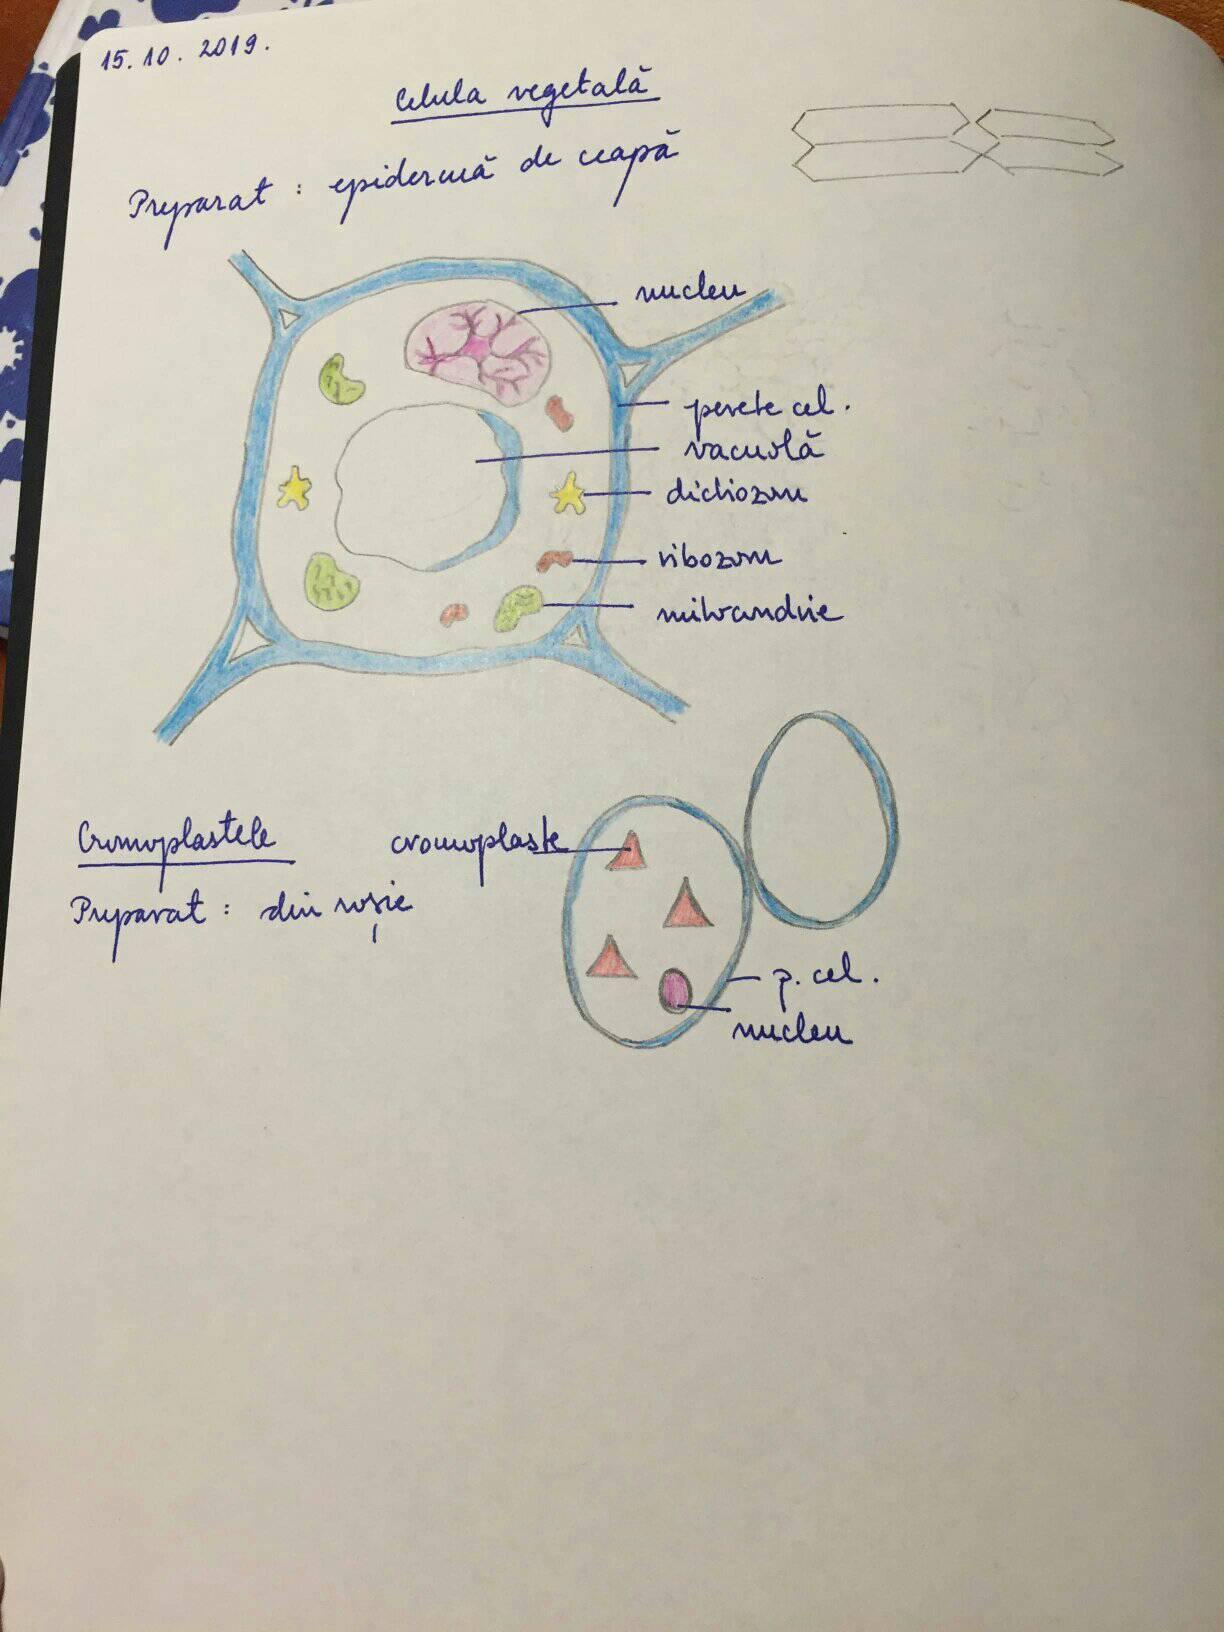 15.10.2019.
Celula vegetală
Preparat : epidermă de ceapă
nucleu
perete cel.
vacuolă
dictiozom
ribozom
mitocondrie
Cromoplastele
cromoplaste
Preparat : din roșie
p. cel.
nucleu